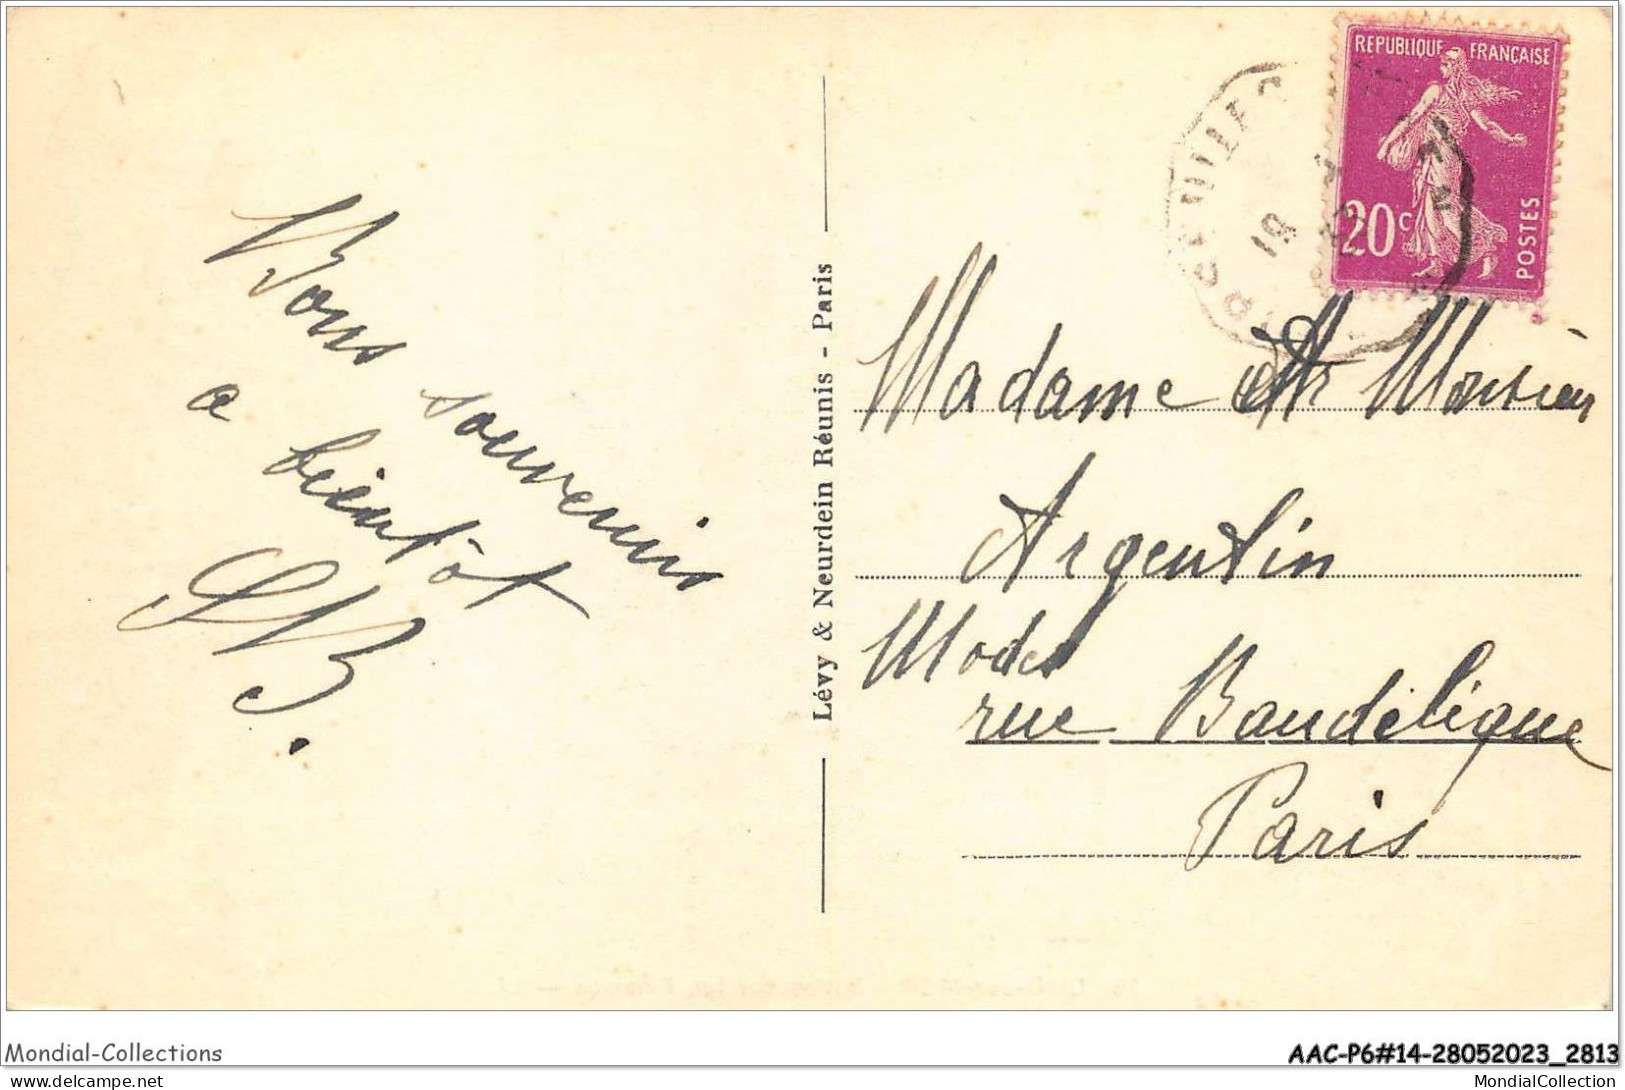 Bons souvenirs
a bientôt
SB.
Lévy & Neurdein Réunis - Paris
REPUBLIQUE FRANÇAISE
20c
POSTES
18
Madame et Monsieur
Argentin
Modes
rue Baudelique
Paris
Mondial-Collections
AAC-P6#14-28052023_2813
www.delcampe.net
MondialCollection